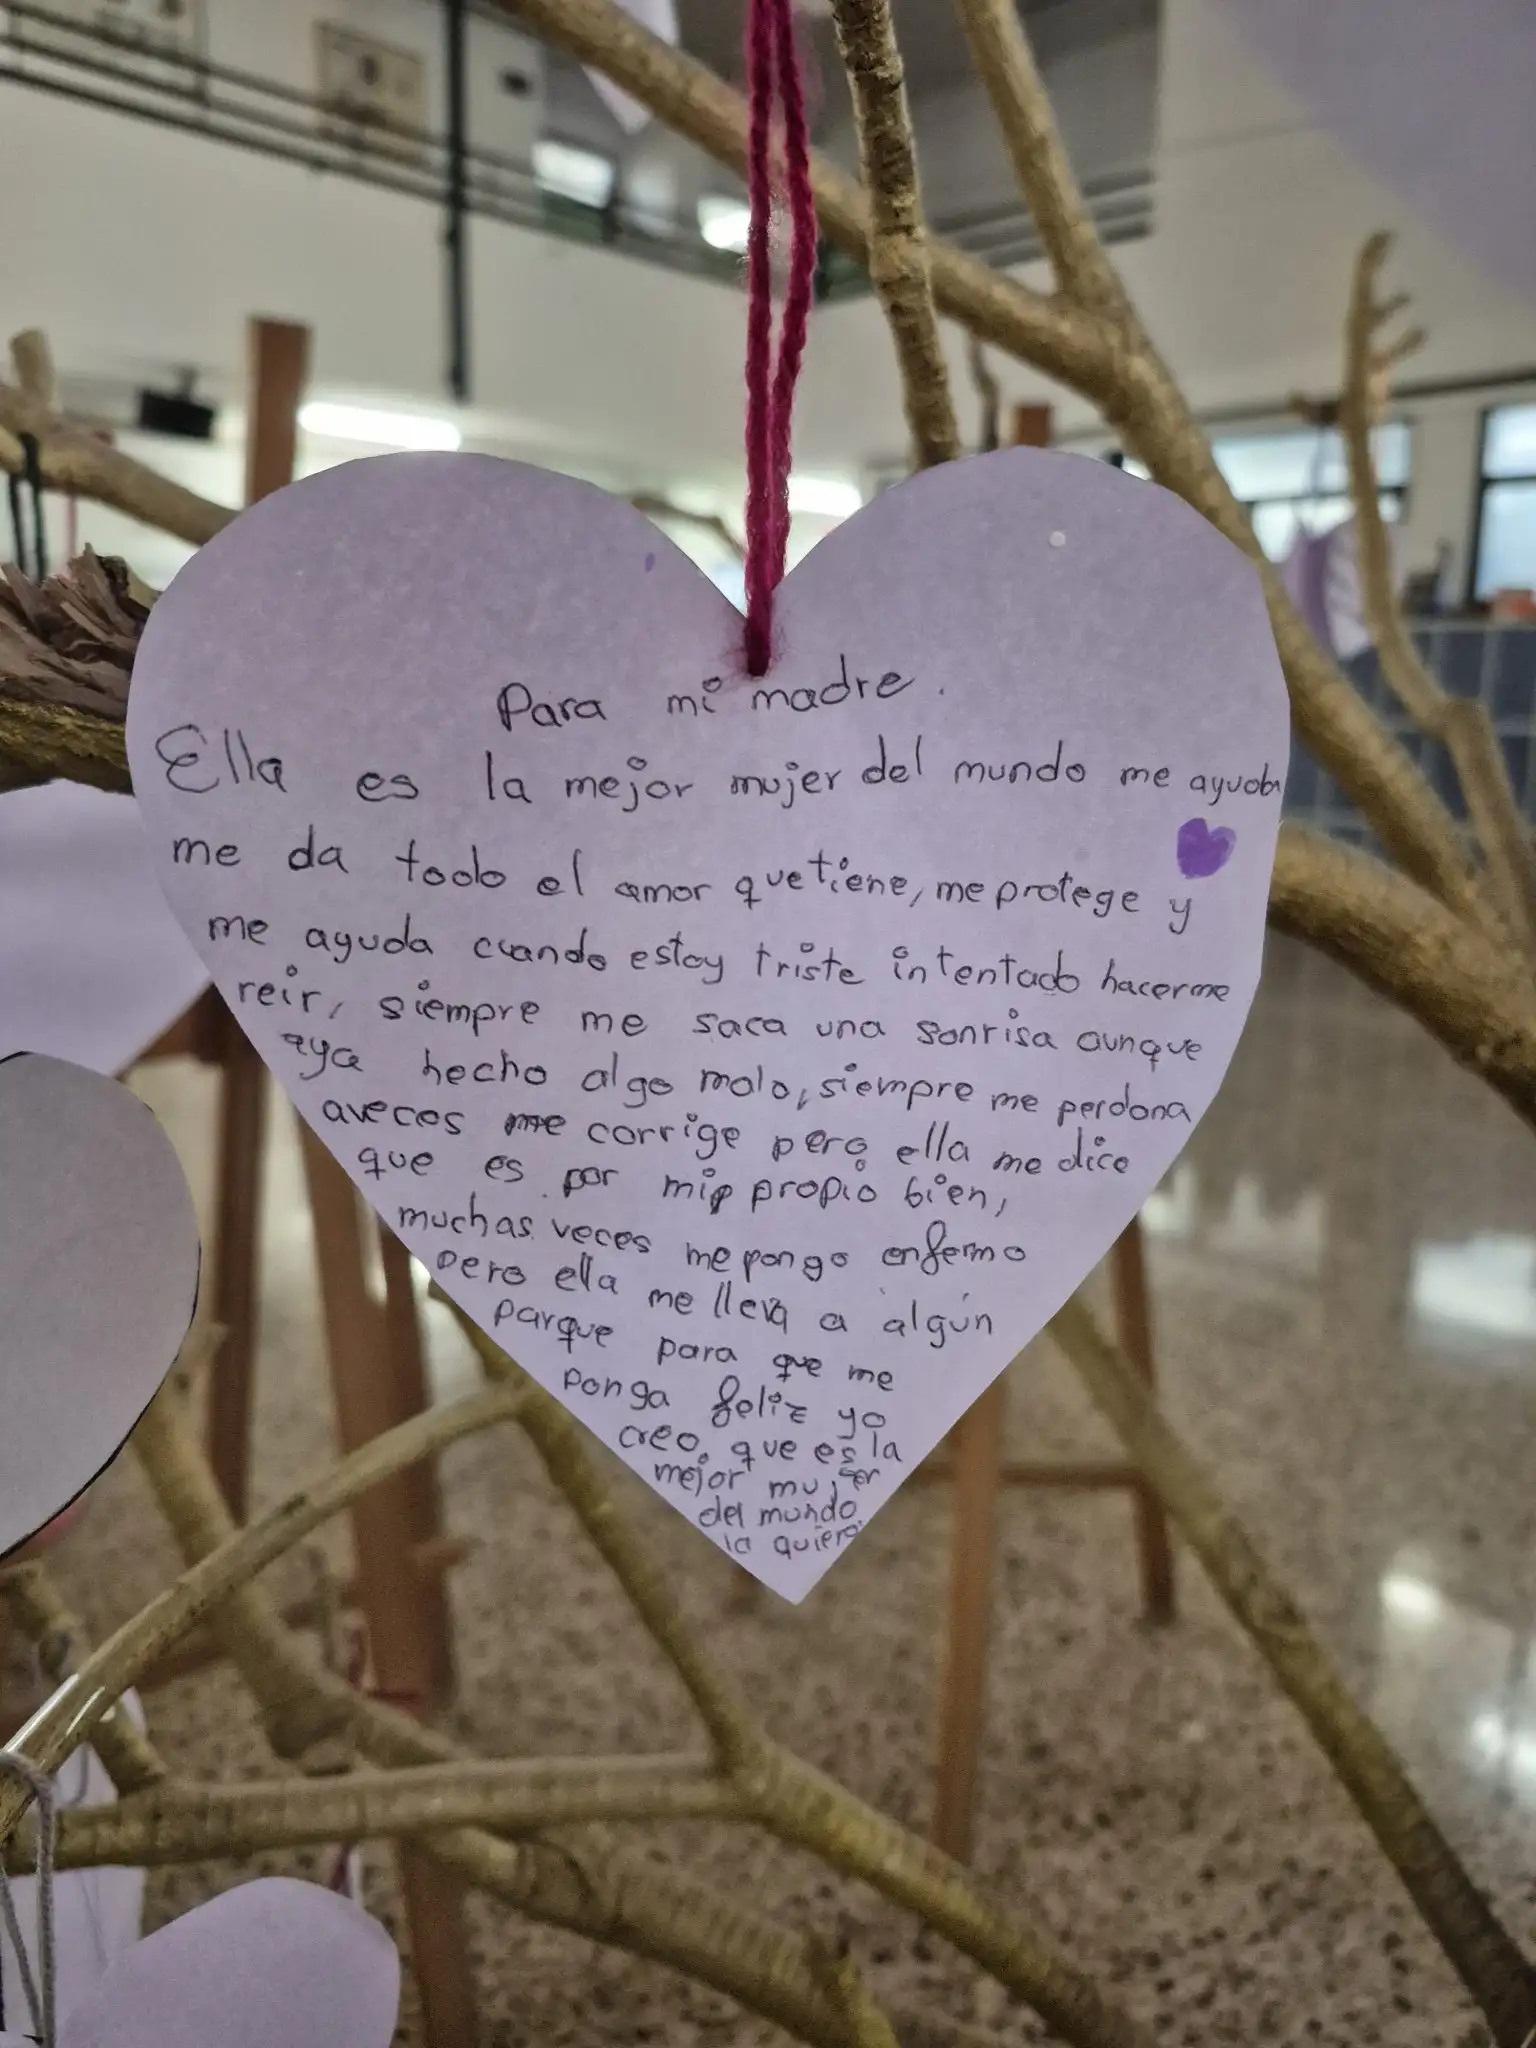 Para mi madre.
Ella es la mejor mujer del mundo me ayuda
me da todo el amor que tiene, me protege y
me ayuda cuando estoy triste intentado hacerme
reir, siempre me saca una sonrisa aunque
aya hecho algo malo, siempre me perdona
aveces me corrige pero ella me dice
que es por mi propio bien,
muchas veces me pongo enfermo
pero ella me lleva a algún
parque para que me
ponga feliz yo
creo que es la
mejor mujer
del mundo
la quiero.